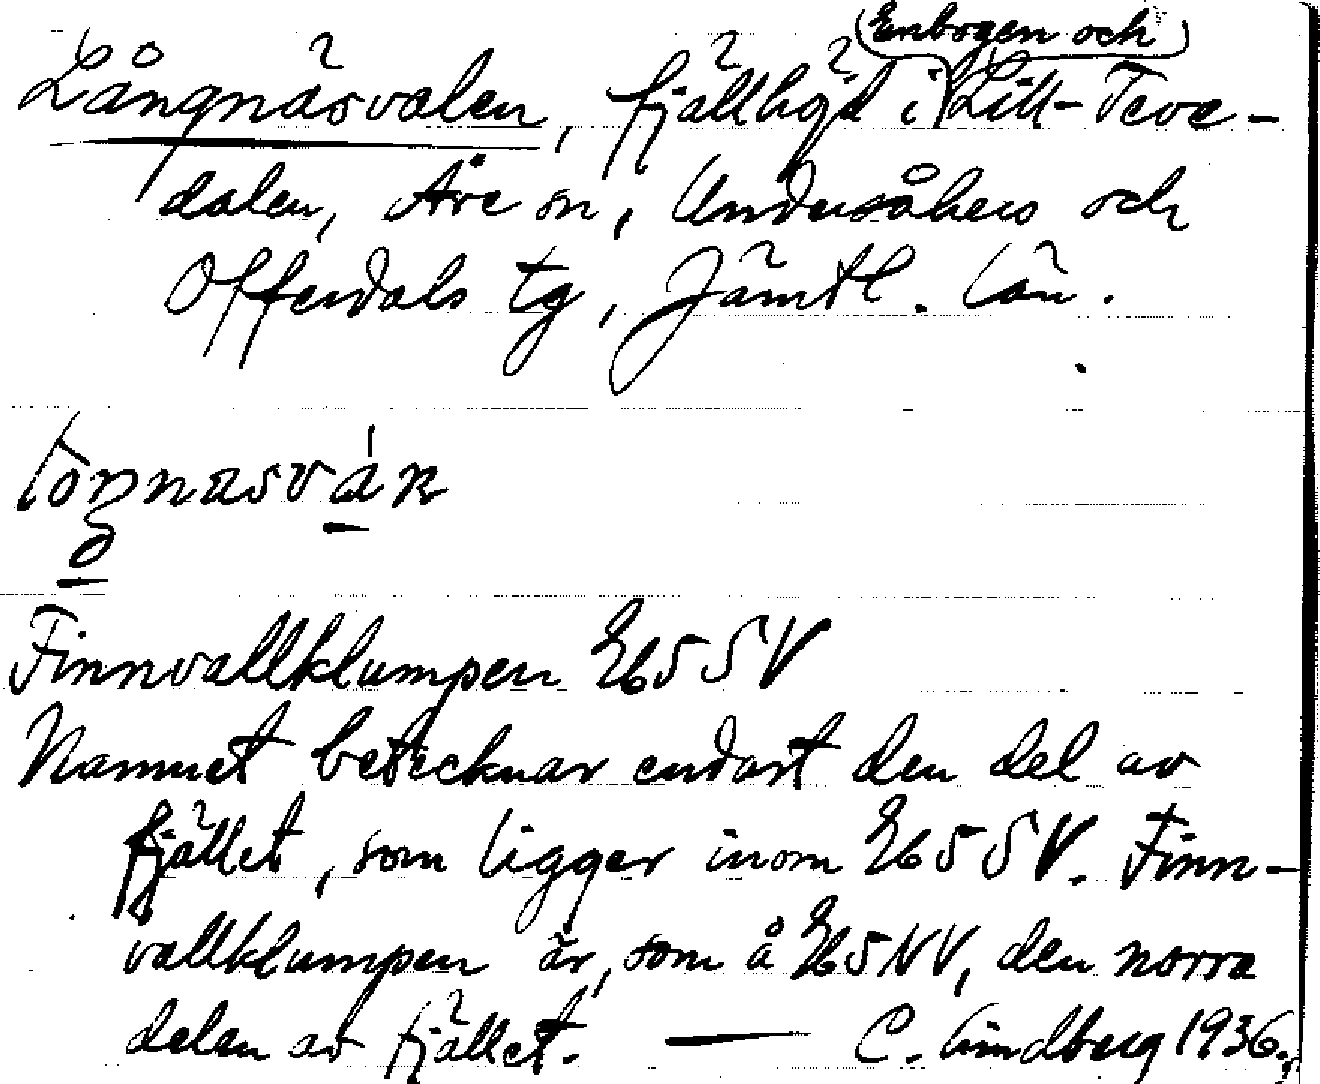 Långnäsvalen, fjällhöjd i (Enbogen och) Lill-Teve-
dalen, Åre sn, Undersåkers och
Offerdals tg, Jämtl. län.
loŋnasvák
o
Finnvallklumpen Eb5SV
Namnet betecknar endast den del av
fjället, som ligger inom Eb5SV. Finn-
vallklumpen är, som å Eb5NV, den norra
delen av fjället. — C. Lindberg 1936.